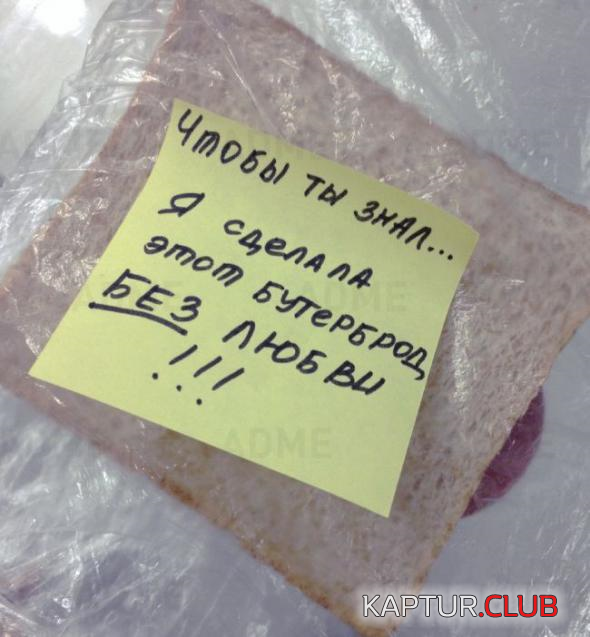 Чтобы ты знал...
Я сделала
этот бутерброд
БЕЗ любви
!!!
ADME
ADME
KAPTUR.CLUB